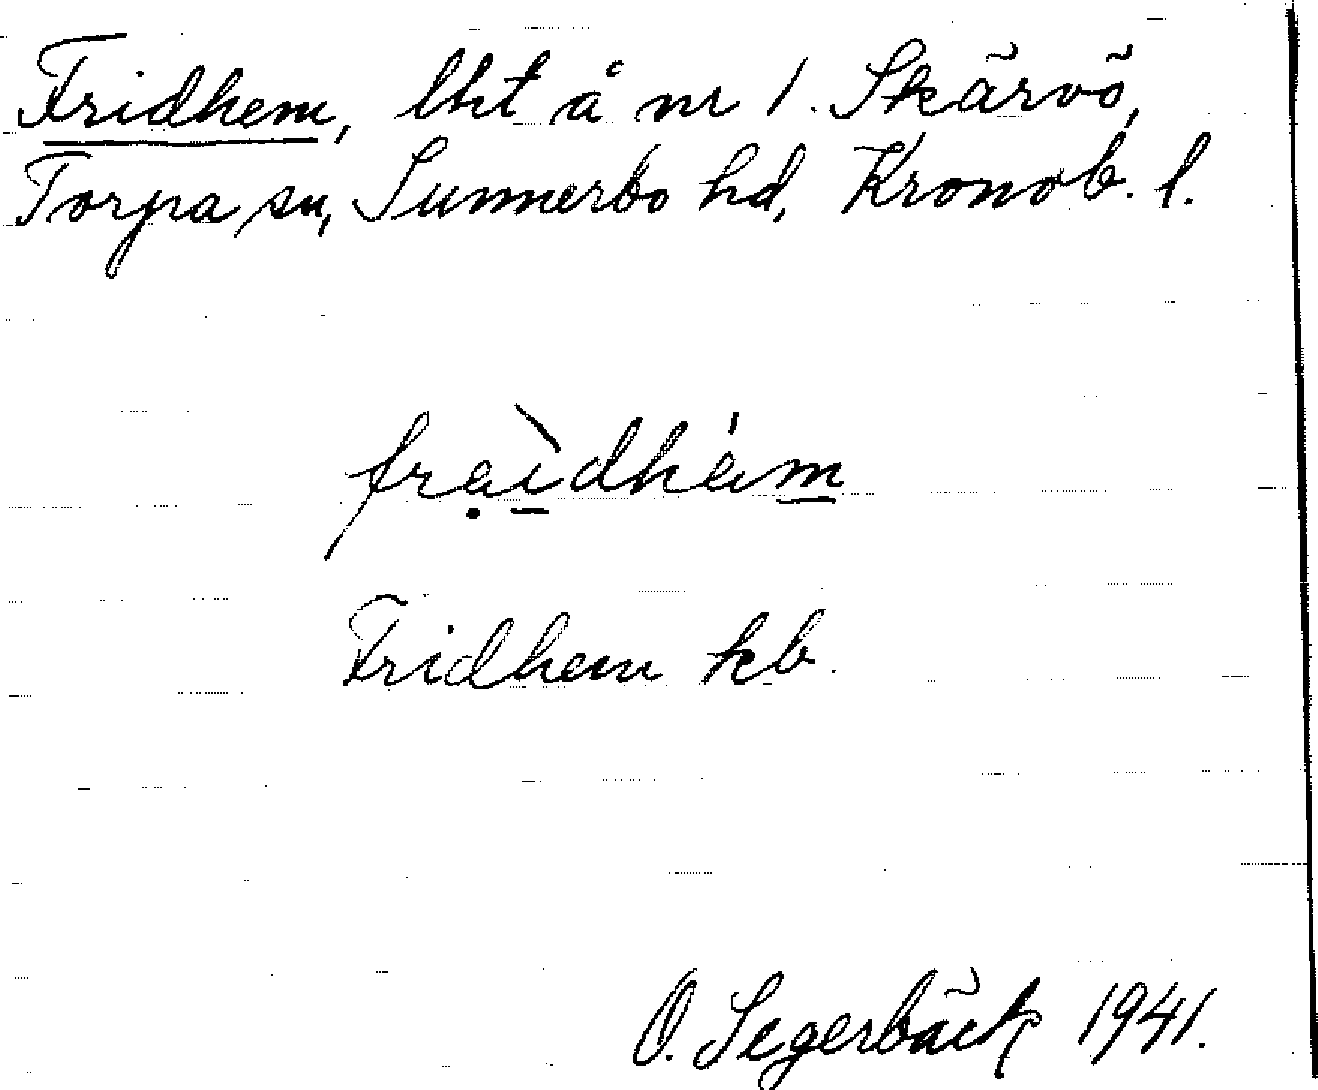 Fridhem, lht å nr 1. Skärvö,
Torpa sn, Sunnerbo hd, Kronob. l.
frạì̠dhä́m̠
Fridhem kb.
O. Segerbäck 1941.